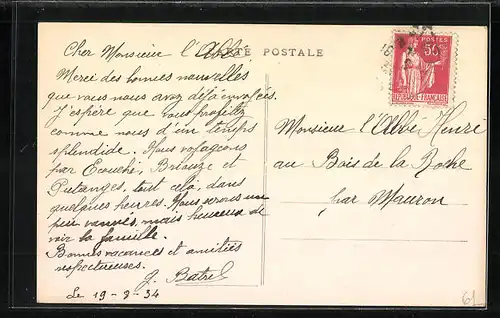 Cher Monsieur l'Abbé
CARTE POSTALE
Merci des bonnes nouvelles
que vous nous avez déjà envoyées.
J'espère que vous profitez
comme nous d'un temps
splendide. Nous voyageons
par Ecouché, Briouze et
Putanges, tout cela, dans
quelques heures. Nous serons un
peu vannés, mais heureux de
voir la famille.
Bonnes vacances et amitiés
respectueuses.
J. Batrel
Le 19-9-34
POSTES
50c
REPUBLIQUE FRANÇAISE
Monsieur l'Abbé Henri
au Bois de la Roche
par Mauron
61